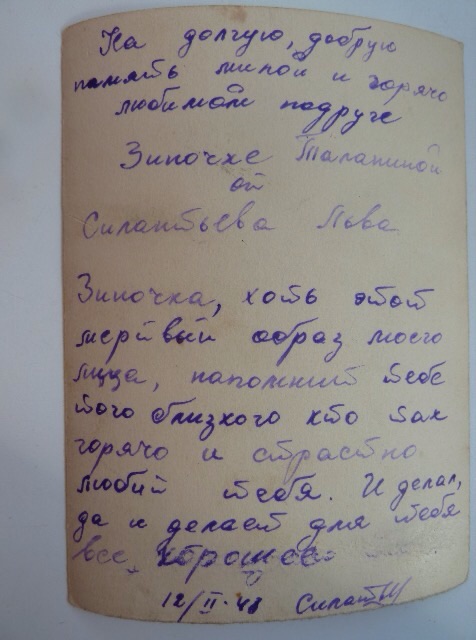 На долгую, добрую
память милой и горячо
любимой подруге
Зиночке Талапиной
от
Силантьева Льва
Зиночка, хоть этот
мертвый образ моего
лица, напомнит тебе
того близкого кто так
горячо и страстно
любит тебя. И делал,
да и делает для тебя
все хорошее
12/II-48 Силант